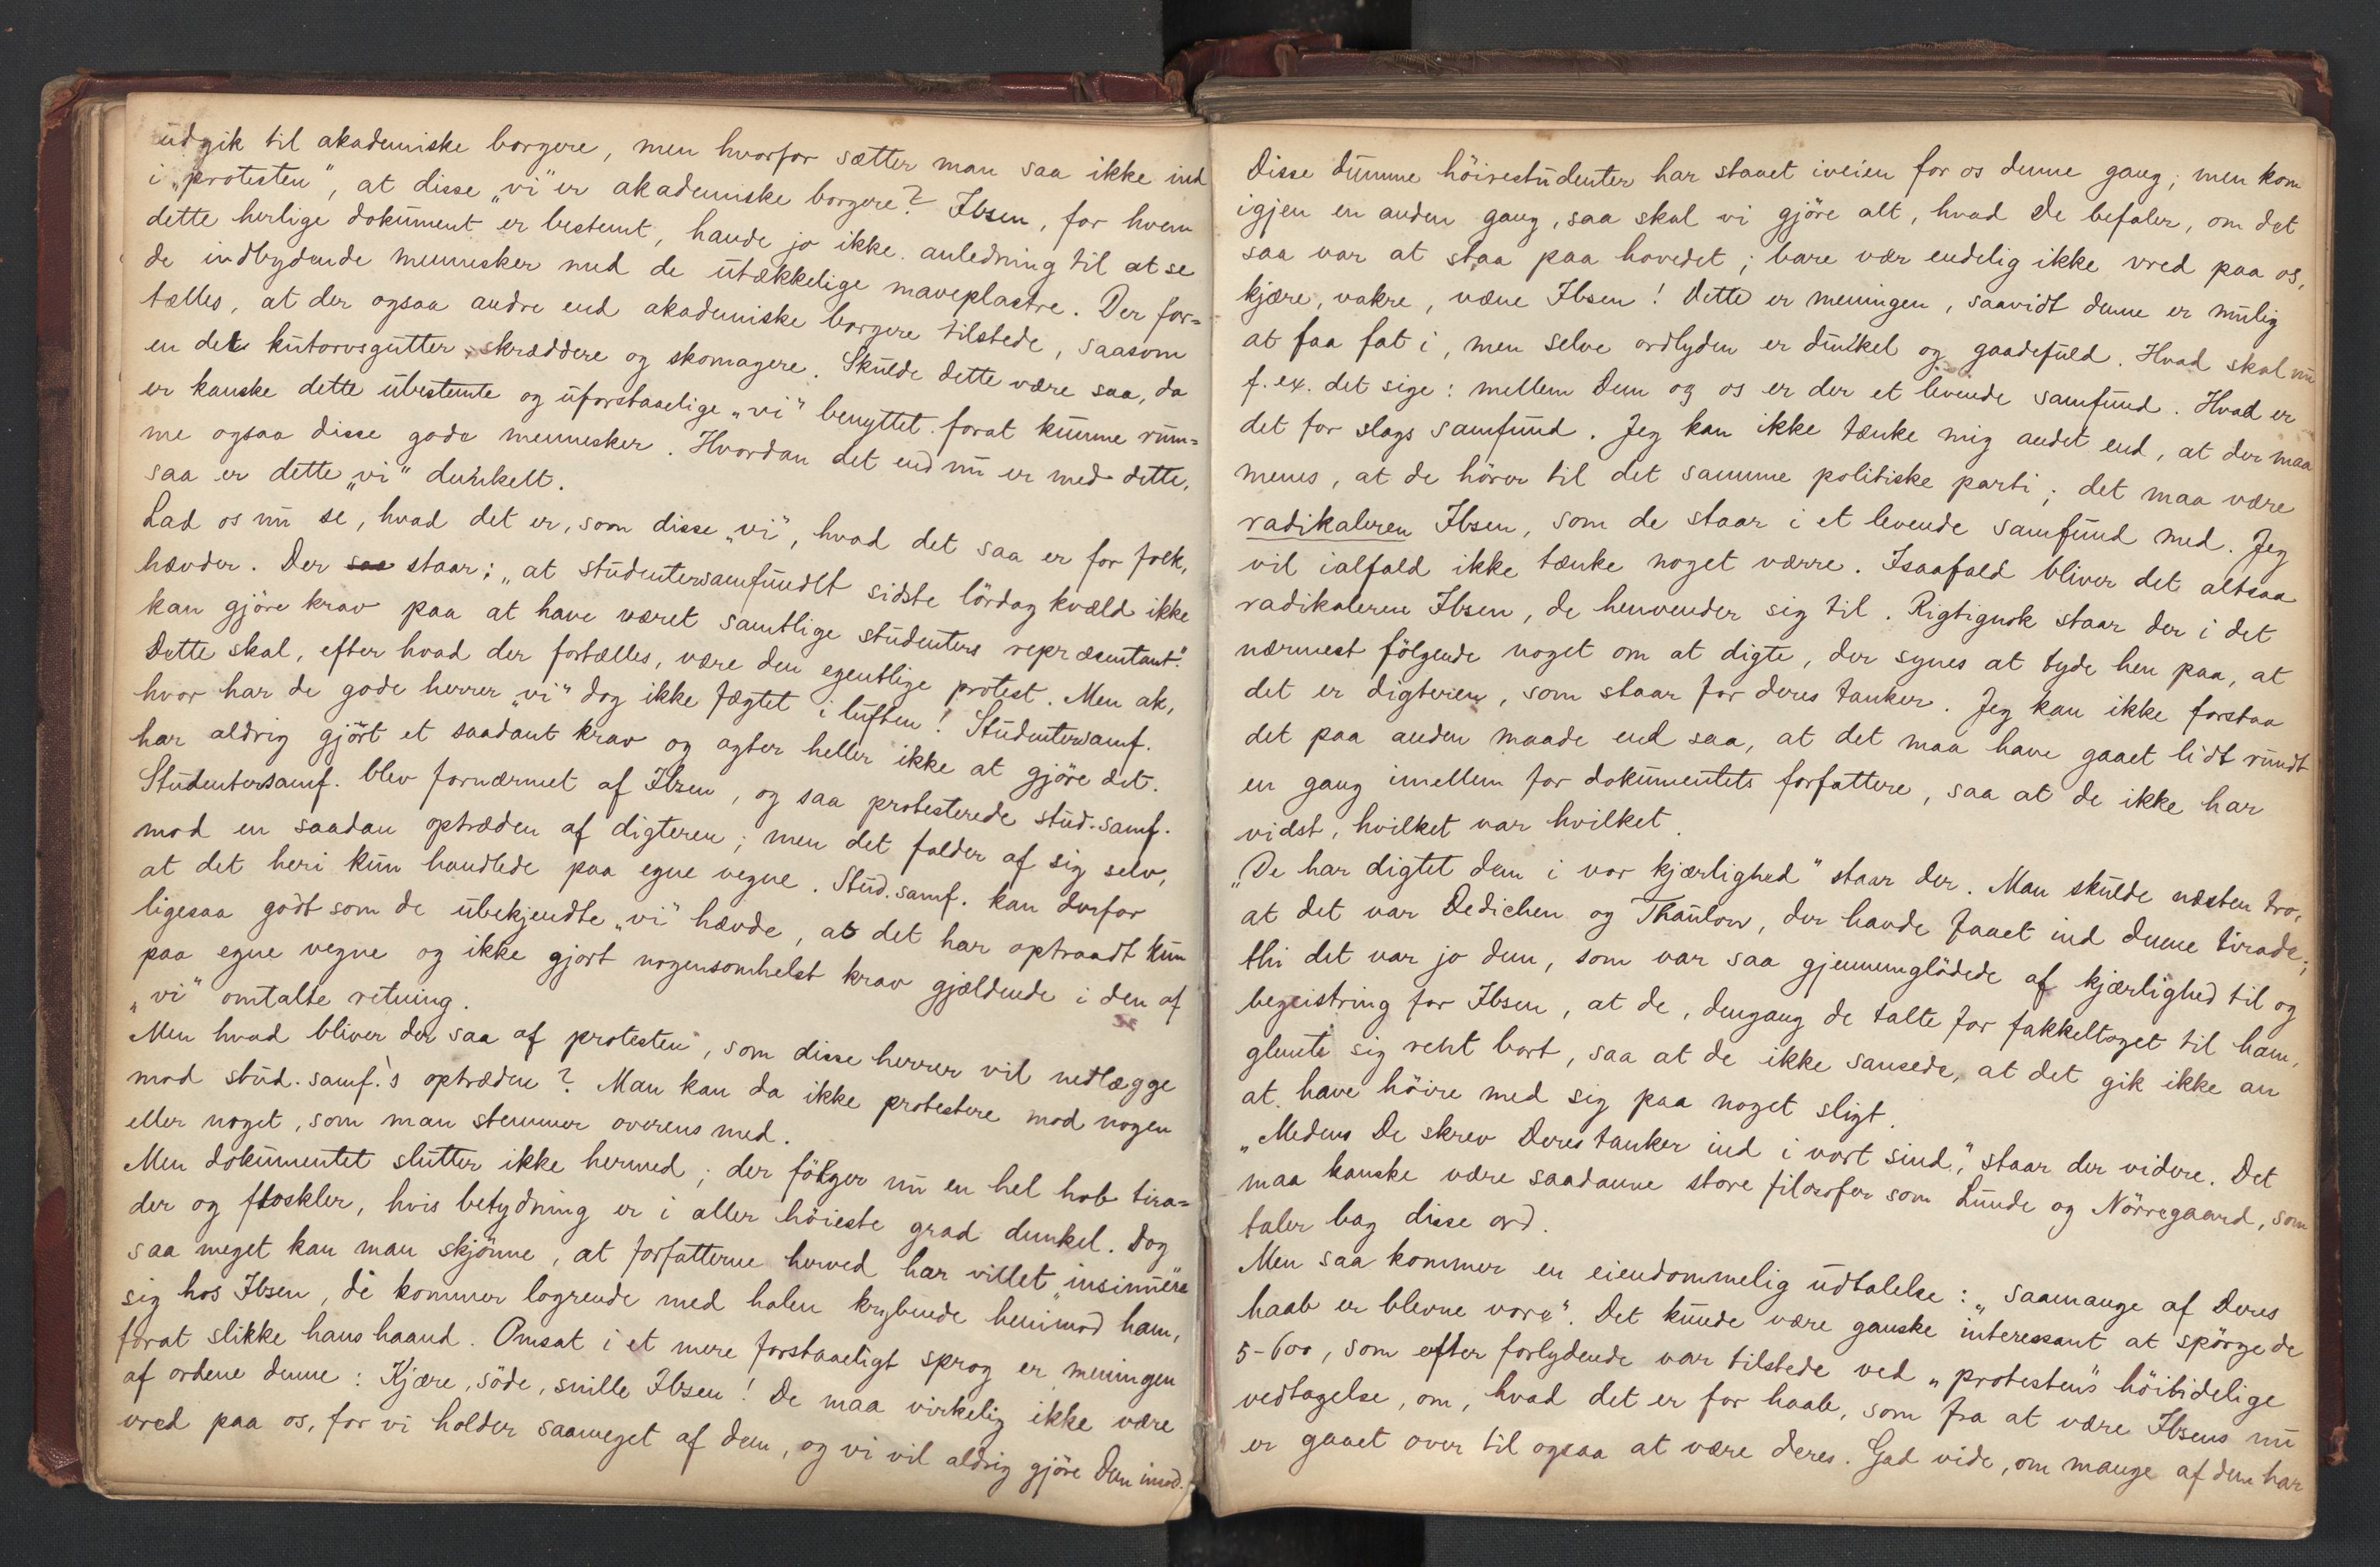 udgik til akademiske borgere, men hvorfor sætter man saa ikke ind
i „protesten", at disse „vi" er akademiske borgere? Ibsen, for hvem
dette herlige dokument er bestemt, havde jo ikke anledning til at se
de indbydende mennesker med de utækkelige maveplastre. Der for=
tælles, at der ogsaa andre end akademiske borgere tilstede, saasom
en dels kutorvsgutter, skræddere og skomagere. Skulde dette være saa, da
er kanske dette ubestemte og uforstaaelige „vi" benyttet forat kunne rum=
me ogsaa disse gode mennesker. Hvordan det end nu er med dette,
saa er dette „vi" dunkelt.
Lad os nu se, hvad det er, som disse „vi", hvad det saa er for folk,
hævder. Der saa staar: „at studentersamfundet sidste lördag kvæld ikke
kan gjöre krav paa at have været samtlige studenters repræsentant".
Dette skal, efter hvad der fortælles, være den egentlige protest. Men ak,
hvor har de gode herrer „vi" dog ikke fægtet i luften! Studentersamf.
har aldrig gjört et saadant krav og agter heller ikke at gjöre det.
Studentersamf. blev fornærmet af Ibsen, og saa protesterede stud.samf.
mod en saadan optræden af digteren; men det falder af sig selv,
at det heri kun handlede paa egne vegne. Stud.samf. kan derfor
ligesaa godt som de ubekjendte „vi" hævde, at det har optraadt kun
paa egne vegne og ikke gjort nogensomhelst krav gjældende i den af
„vi" omtalte retning.
Men hvad bliver der saa af protesten, som disse herrer vil nedlægge
mod stud.samf.'s optræden? Man kan da ikke protestere mod nogen
eller noget, som man stemmer overens med.
Men dokumentet slutter ikke hermed; der fölger nu en hel hob tira=
der og floskler, hvis betydning er i aller höieste grad dunkel. Dog
saa meget kan man skjönne, at forfatterne herved har villet insinuere
sig hos Ibsen, de kommer logrende med halen krybende henimod ham,
forat slikke hans haand. Omsat i et mere forstaaeligt sprog er meningen
af ordene denne: Kjære, söde, snille Ibsen! De maa virkelig ikke være
vred paa os, for vi holder saameget af dem, og vi vil aldrig gjöre Dem imod.
Disse dumme höirestudenter har staaet iveien for os denne gang; men kom
igjen en anden gang, saa skal vi gjöre alt, hvad De befaler, om det
saa var at staa paa hovedet; bare vær endelig ikke vred paa os,
kjære, vakre, væne Ibsen! Dette er meningen, saavidt denne er mulig
at faa fat i, men selve ordlyden er dunkel og gaadefuld. Hvad skal nu
f. ex. det sige: mellem Dem og os er der et levende samfund. Hvad er
det for slags samfund. Jeg kan ikke tænke mig andet end, at der maa
menes, at de hörer til det samme politiske parti; det maa være
radikaleren Ibsen, som de staar i et levende samfund med. Jeg
vil ialfald ikke tænke noget værre. Isaafald bliver det altsaa
radikaleren Ibsen, de henvender sig til. Rigtignok staar der i det
nærmest fölgende noget om at digte, der synes at tyde hen paa, at
det er digteren, som staar for deres tanker. Jeg kan ikke forstaa
det paa anden maade end saa, at det maa have gaaet lidt rundt
en gang imellem for dokumentets forfattere, saa at de ikke har
vidst, hvilket var hvilket.
„De har digtet dem i vor kjærlighed" staar der. Man skulde næsten tro,
at det var Dedichen og Thaulow, der havde faaet ind denne tirade;
thi det var jo dem, som var saa gjennemglödede af kjærlighed til og
begeistring for Ibsen, at de, dengang de talte for fakkeltoget til ham,
glemte sig rent bort, saa at de ikke sansede, at det gik ikke an
at have höire med sig paa noget sligt.
„Medens De skrev Deres tanker ind i vort sind," staar der videre. Det
maa kanske være saadanne store filosofer som Lunde og Nörregaard, som
taler bag disse ord.
Men saa kommer en eiendommelig udtalelse: „saamange af Deres
haab er blevne vore". Det kunde være ganske interessant at spörge de
5-600, som efter forlydende var tilstede ved „protesten"s höitidelige
vedtagelse, om, hvad det er for haab, som fra at være Ibsens nu
er gaaet over til ogsaa at være deres. Gad vide, om mange af dem har